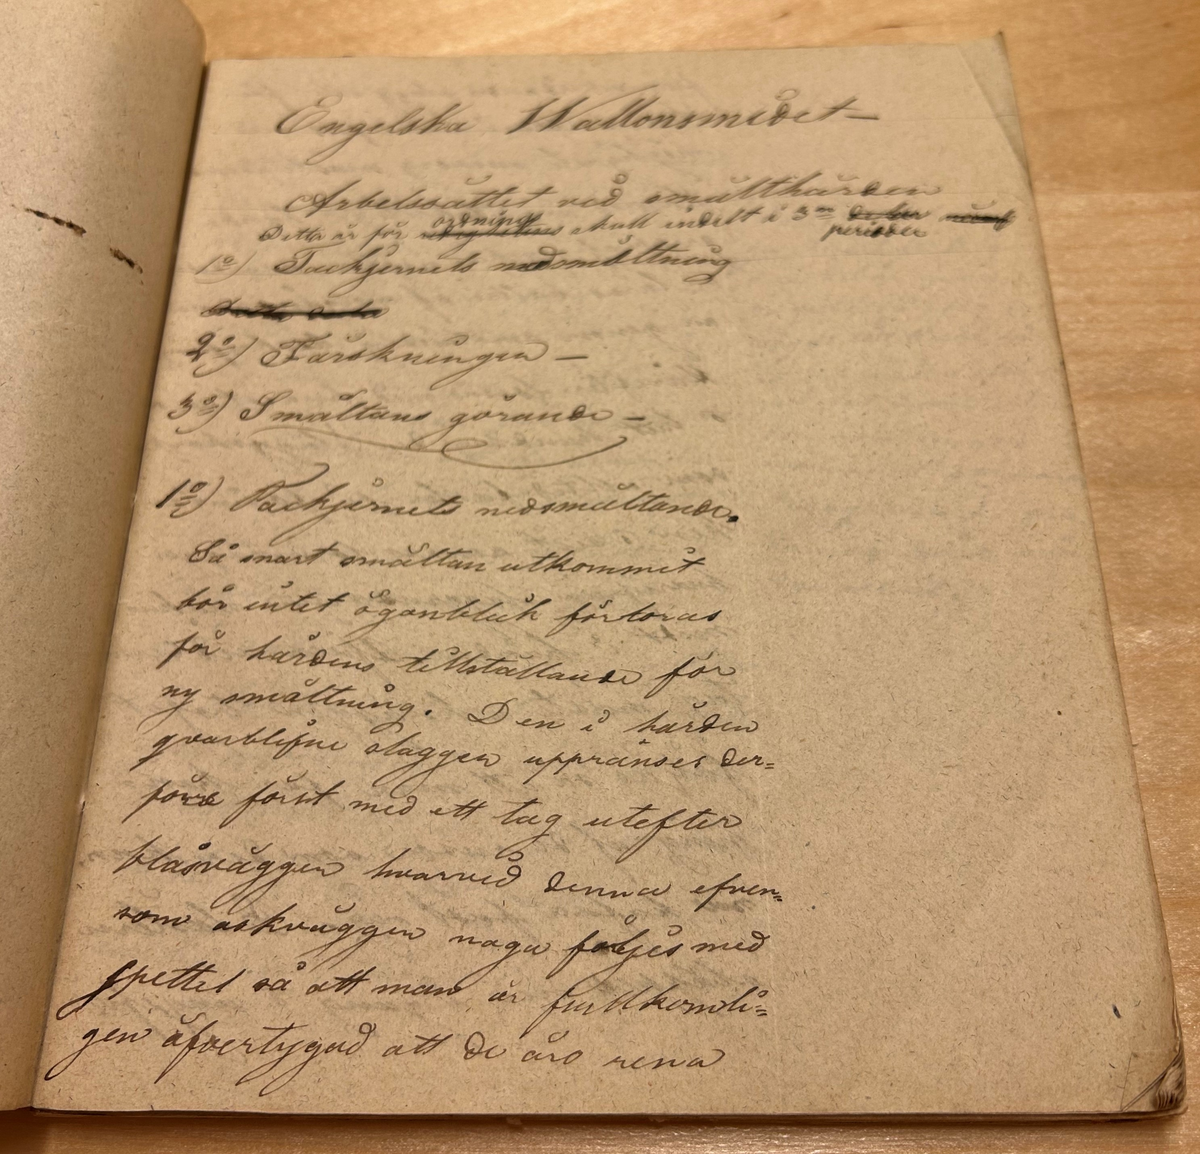 Engelska Wallonsmidet –
Arbetssättet vid smälthärden
Detta är för ordnings skull indelt i 3ne perioder
1o) Tackjernets nedsmältning
2o) Färskningen –
3o) Smältans görande –
1o) Tackjernets nedsmältande.
Så snart smältan utkommit
bör intet ögonblick förloras
för härdens tillställande för
ny smältning. Den i härden
qvarblifne slaggen uppränses der=
före först med ett tag utefter
blåsväggen hvarvid denna efven=
som askväggen noga följes med
spettet så att man är fullkomli=
gen öfvertygad att de äro rena